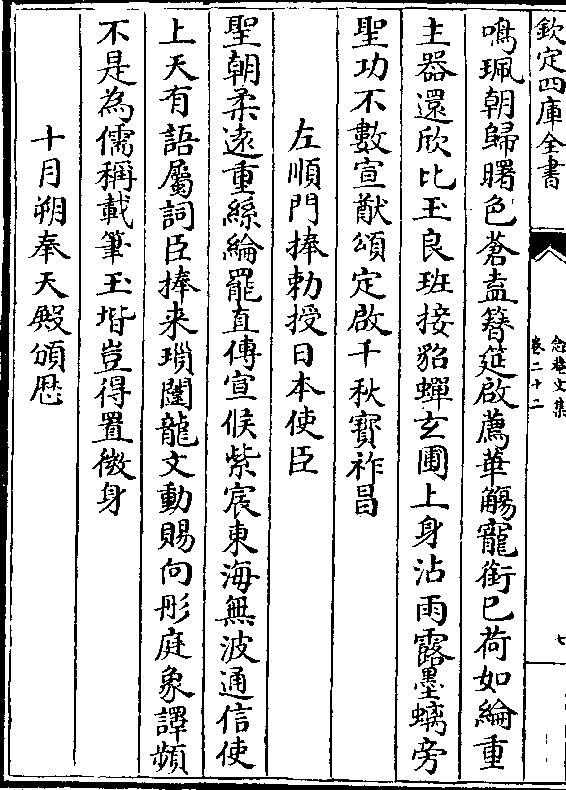 欽定四庫全書
念菴文集
卷二十二
七
鳴珮朝歸曙色蒼盍簪筵啟薦華觴寵銜已荷如綸重
主器還欣比玉良班接貂蟬玄圃上身沾雨露墨螭旁
聖功不數宣猷頌定啟千秋寳祚昌
左順門捧勅授日本使臣
聖朝柔逺重絲綸罷直傳宣候紫宸東海無波通信使
上天有語屬詞臣捧来瑣闥龍文動賜向彤庭象譯頻
不是為儒稱載筆玉堦豈得置微身
十月朔奉天殿頒厯